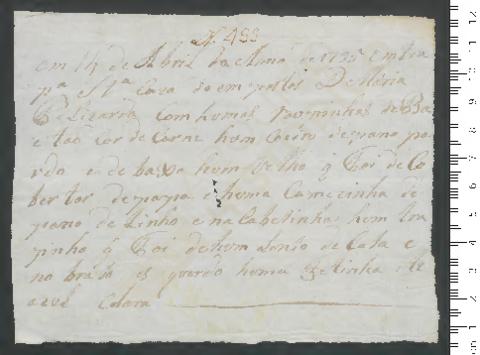 N. 488
em 14 de Abril da Anno de 1795 Entra
pª Stª Caza do em postos De Maria
Belizarda com humas Roupinhas de Ba
etao cor de Carne hum Coeiro de pano pa
rdo e de baxo hum velho q̃ Foi de Co
bertor de papa e huma Camezinha de
pano de Linho e na Cabesinha hum tra
pinho q̃ Foi de hum Lenso de Casa e
no braso es querdo huma Fetinha de
azul Clara